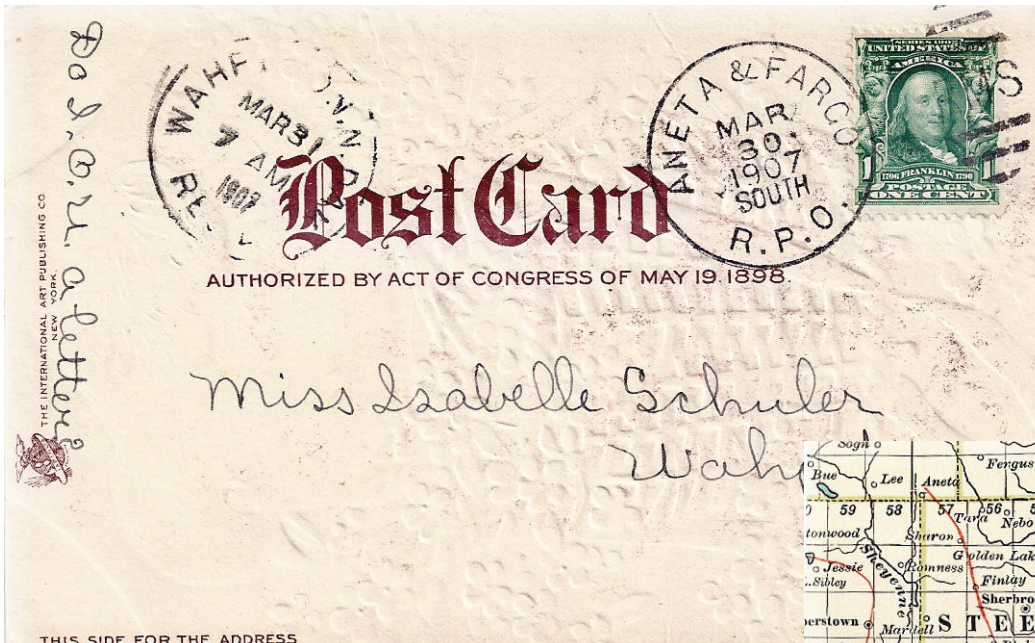 Do I. O. U. a letter?
THE INTERNATIONAL ART PUBLISHING CO.
NEW YORK.
MAR 31
7 AM
1907
ANETA & FARGO
MAR
30
1907
SOUTH
R.P.O.
SERIES 1902
UNITED STATES OF
AMERICA
1706 FRANKLIN 1790
1 POSTAGE 1
ONE CENT
Post Card
AUTHORIZED BY ACT OF CONGRESS OF MAY 19. 1898.
Miss Isabelle Schuler
Wahp
Sogn
Fergus
Bue
Lee
Aneta
59 58 57 56
Tara
Nebo
tonwood
Sharon
Golden Lak
Sheyenne
Jessie
Romness
Sibley
Finlay
Sherbro
erstown
Mardell
STEE
THIS SIDE FOR THE ADDRESS